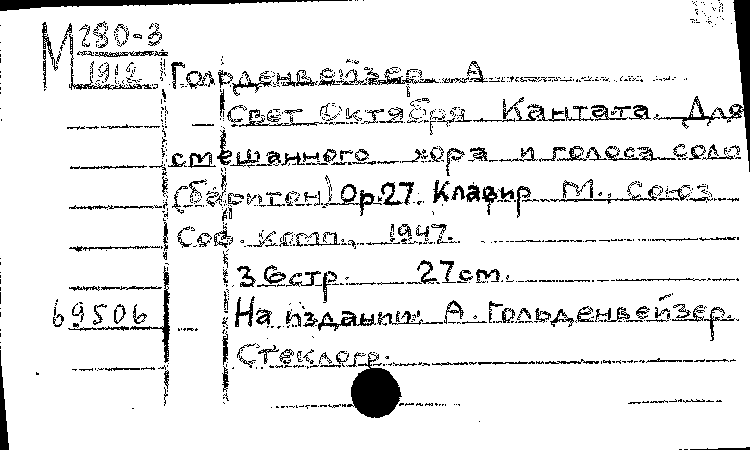 М 280-3
1912
Гольденвейзер А
Свет Октября. Кантата. Для
смешанного хора и голоса соло
(баритон) Op.27. Клавир М., Союз
Сов. комп., 1947.
36стр. 27см.
69506 На издании: А. Гольденвейзер.
Стеклогр.